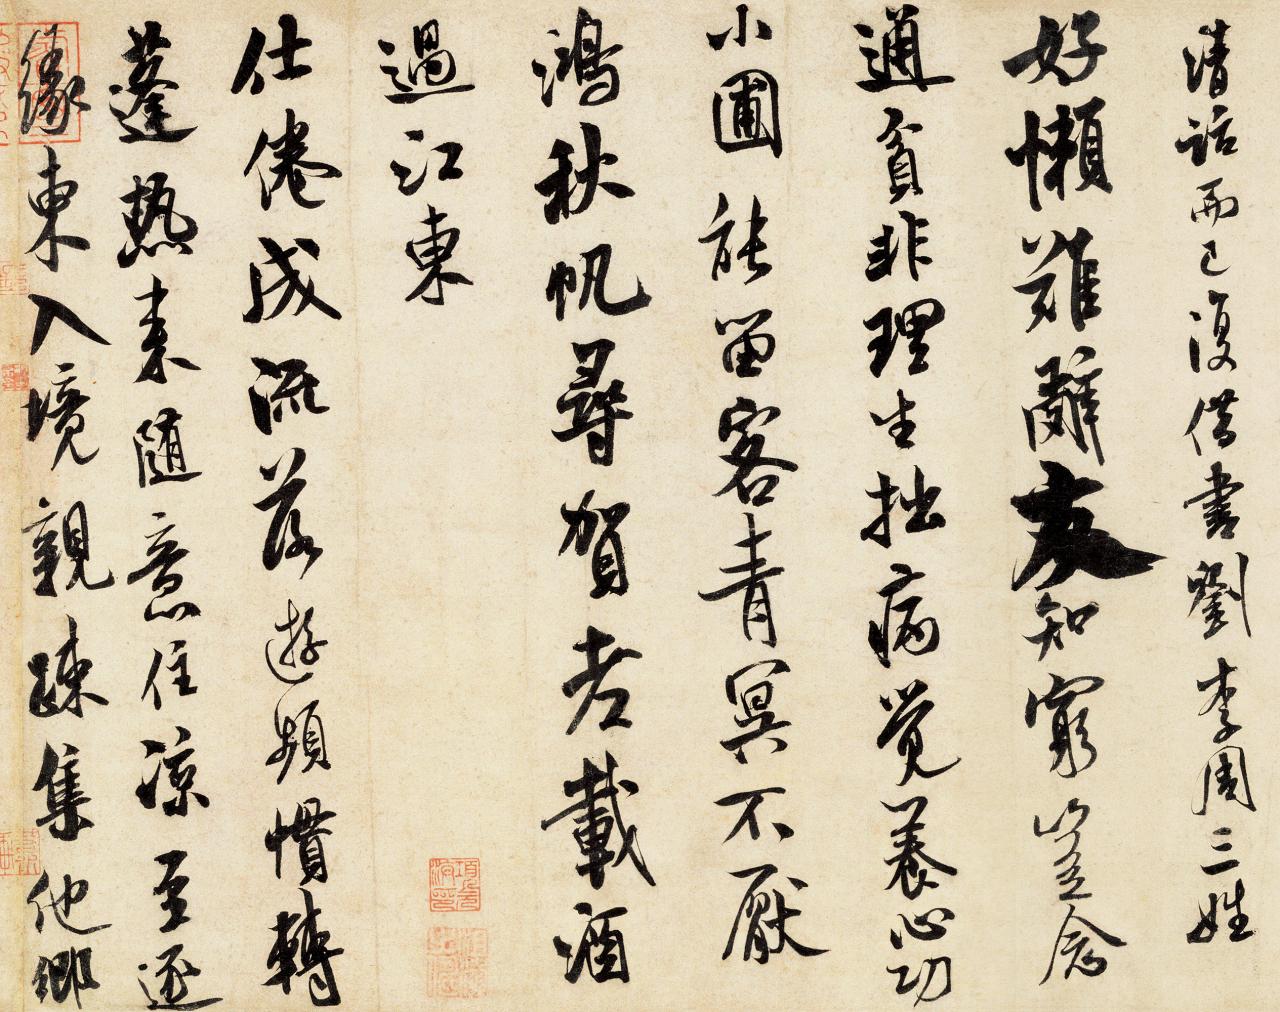 清話而已復借書劉李周三姓
好懶難辭友知窮豈念
通貧非理生拙病覺養心功
小圃能留客青冥不厭
鴻秋帆尋賀老載酒
過江東
仕倦成流落遊頻慣轉
蓬熱來隨意住涼至逐
緣東入境親疎集他鄉